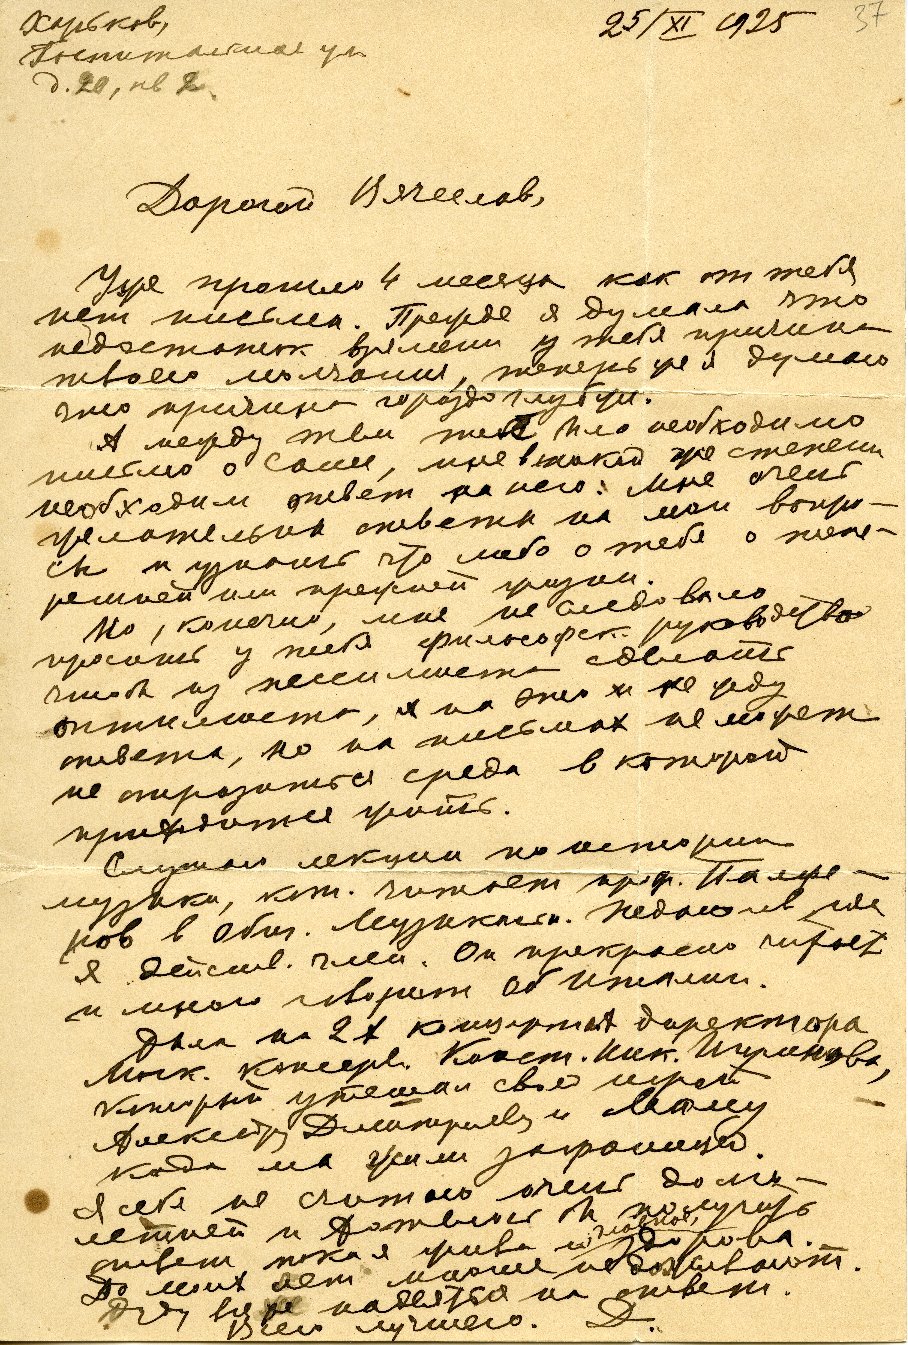 37
Харьков,
Госпитальная ул
д. 20, кв 2.
25/XI 1925
Дорогой Вячеслав,
Уже прошло 4 месяца как от тебя
нет письма. Прежде я думала что
недостаток времени у тебя причина
твоего молчания, теперь уже я думаю
что причина гораздо глубже.
А между тем тебе было необходимо
письмо о Саше, мне в такой же степени
необходим ответ на него. Мне очень
желательны ответы на мои вопро-
сы и узнать что либо о тебе о тепе-
решней или прежней жизни.
Но, конечно, мне не следовало
просить у тебя философск. руководство
чтоб из пессимиста сделать
оптимиста, я на это и не жду
ответа, но на письмах не может
не отразиться среда в которой
приходится жить.
Слушаю лекции по истории
музыки, кот. читает проф.
нов в Общ. Музыкальн. где
я действ. член. Он прекрасно читает
и много говорит об Италии.
Была на 2х концертах директора
Моск. консерв. Конст. Ник. Игумнова,
который утешал своей игрой
Александру Дмитриевну и Маму
когда мы жили заграницей.
Я себя не считаю очень долго-
летней и желала бы получить
ответ пока я жива и здорова.
До моих лет многие не доживают.
Буду все же надеяться на ответ.
Всего лучшего. Д.